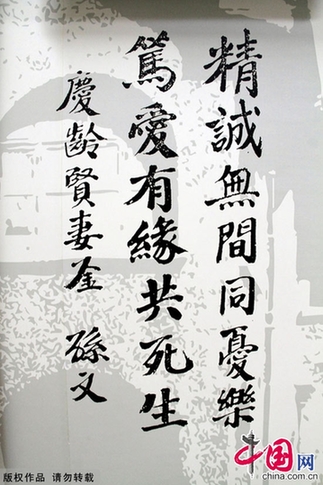 精誠無間同憂樂
篤愛有緣共死生
慶齡賢妻鉴 孫文
中国网
china.com.cn
版权作品 请勿转载